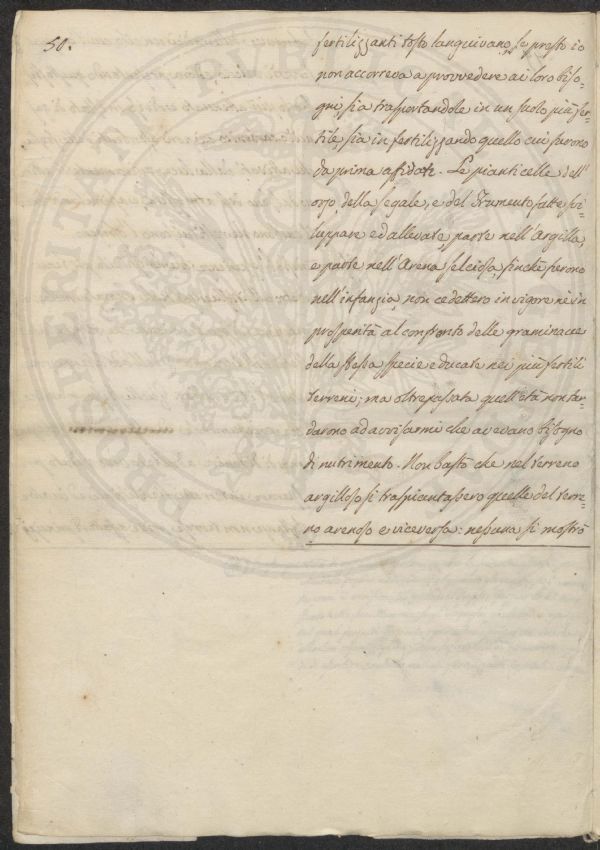 50.
fertilizzanti tosto languivano, se presto io
non accorreva a provvedere ai loro biso=
gni, sia trasportandole in un suolo più fer=
tile, sia in fertilizzando quello cui furono
da prima affidate. Le pianticelle dell'
orzo della segale, e del frumento fatte svi=
luppare ed allevate, parte nell'Argilla,
e parte nell'Arena selciosa, finchè furono
nell'infanzia, non cedettero in vigore nè in
prosperità al confronto delle graminacee
della stessa specie educate nei più fertili
terreni; ma oltrepassata quell'età non tar=
darono ad avvisarmi che avevano bisogno
di nutrimento. Non bastò che nel terreno
argilloso si traspiantassero quelle del terre=
no arenoso e viceversa: nessuna si mostrò